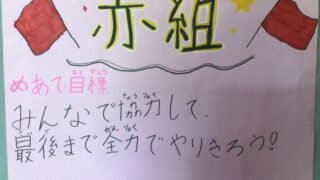 赤組
めあて目標
みんなで協力して、
最後まで全力でやりきろう!